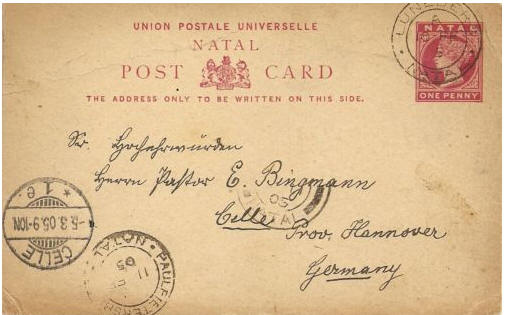 UNION POSTALE UNIVERSELLE
NATAL
POST CARD
THE ADDRESS ONLY TO BE WRITTEN ON THIS SIDE.
NATAL
ONE PENNY
LUNEBERG
NATAL
Sr. Hochehrwürden
Herrn Pastor E. Bingmann
Celle
Prov. Hannover
Germany
05
NATAL
* 1e *
-5.3.05.9-10N
CELLE
PAULPIETERSB
NATAL
11
05